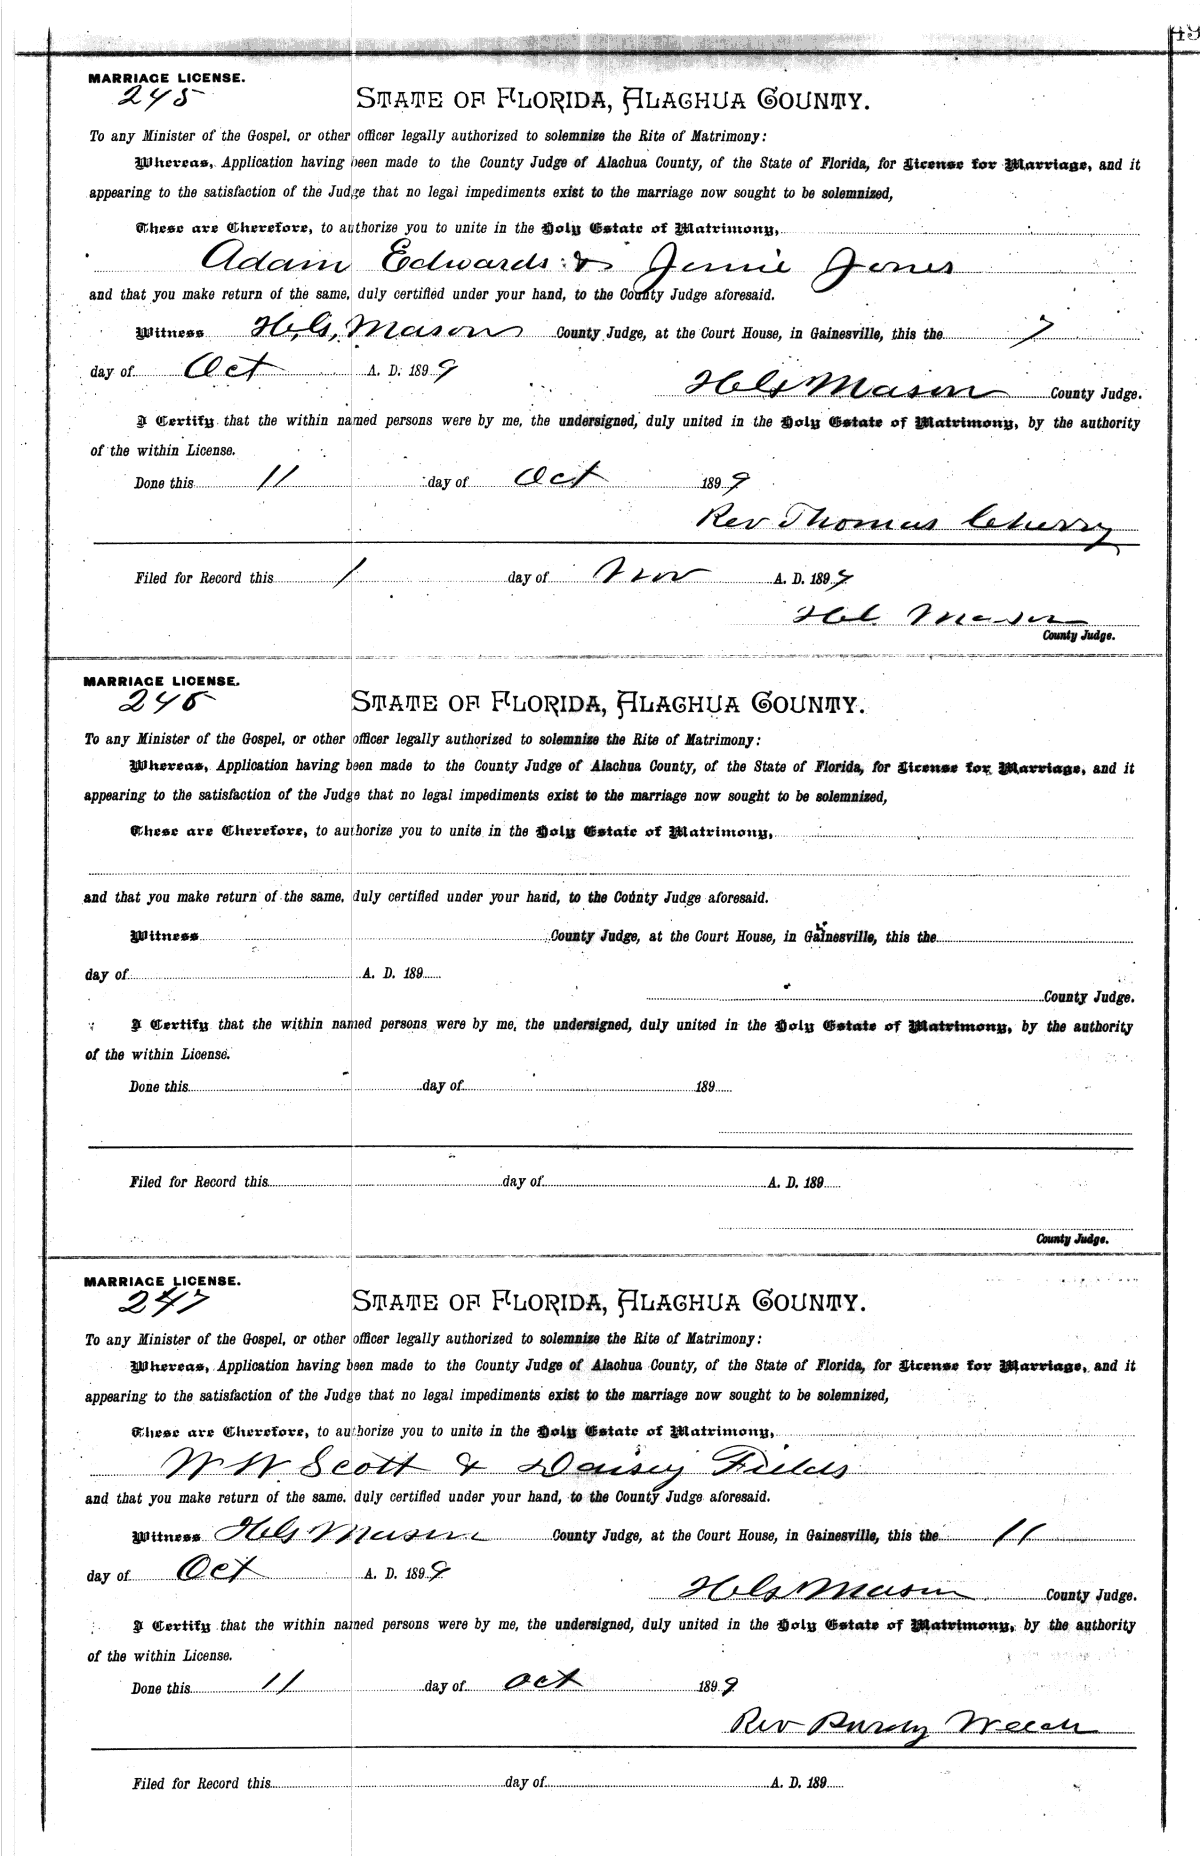 49
MARRIAGE LICENSE.
245
STATE OF FLORIDA, ALACHUA COUNTY.
To any Minister of the Gospel, or other officer legally authorized to solemnize the Rite of Matrimony:
Whereas, Application having been made to the County Judge of Alachua County, of the State of Florida, for License for Marriage, and it
appearing to the satisfaction of the Judge that no legal impediments exist to the marriage now sought to be solemnized,
These are Therefore, to authorize you to unite in the Holy Estate of Matrimony,
Adam Edwards & Jennie Jones
and that you make return of the same, duly certified under your hand, to the County Judge aforesaid.
Witness H.G. Mason County Judge, at the Court House, in Gainesville, this the 7
day of Oct A. D. 1899
H G Mason County Judge.
I Certify that the within named persons were by me, the undersigned, duly united in the Holy Estate of Matrimony, by the authority
of the within License.
Done this 11 day of Oct 1899
Rev Thomas Cherry
Filed for Record this 1 day of Nov A. D. 1899
H G Mason
County Judge.
MARRIAGE LICENSE.
246
STATE OF FLORIDA, ALACHUA COUNTY.
To any Minister of the Gospel, or other officer legally authorized to solemnize the Rite of Matrimony:
Whereas, Application having been made to the County Judge of Alachua County, of the State of Florida, for License for Marriage, and it
appearing to the satisfaction of the Judge that no legal impediments exist to the marriage now sought to be solemnized,
These are Therefore, to authorize you to unite in the Holy Estate of Matrimony,
and that you make return of the same, duly certified under your hand, to the County Judge aforesaid.
Witness County Judge, at the Court House, in Gainesville, this the
day of A. D. 189
County Judge.
I Certify that the within named persons were by me, the undersigned, duly united in the Holy Estate of Matrimony, by the authority
of the within License.
Done this day of 189
Filed for Record this day of A. D. 189
County Judge.
MARRIAGE LICENSE.
247
STATE OF FLORIDA, ALACHUA COUNTY.
To any Minister of the Gospel, or other officer legally authorized to solemnize the Rite of Matrimony:
Whereas, Application having been made to the County Judge of Alachua County, of the State of Florida, for License for Marriage, and it
appearing to the satisfaction of the Judge that no legal impediments exist to the marriage now sought to be solemnized,
These are Therefore, to authorize you to unite in the Holy Estate of Matrimony,
W W Scott & Daisey Fields
and that you make return of the same, duly certified under your hand, to the County Judge aforesaid.
Witness H G Mason County Judge, at the Court House, in Gainesville, this the 11
day of Oct A. D. 1899
H G Mason County Judge.
I Certify that the within named persons were by me, the undersigned, duly united in the Holy Estate of Matrimony, by the authority
of the within License.
Done this 11 day of Oct 1899
Rev Purdy Welch
Filed for Record this day of A. D. 189